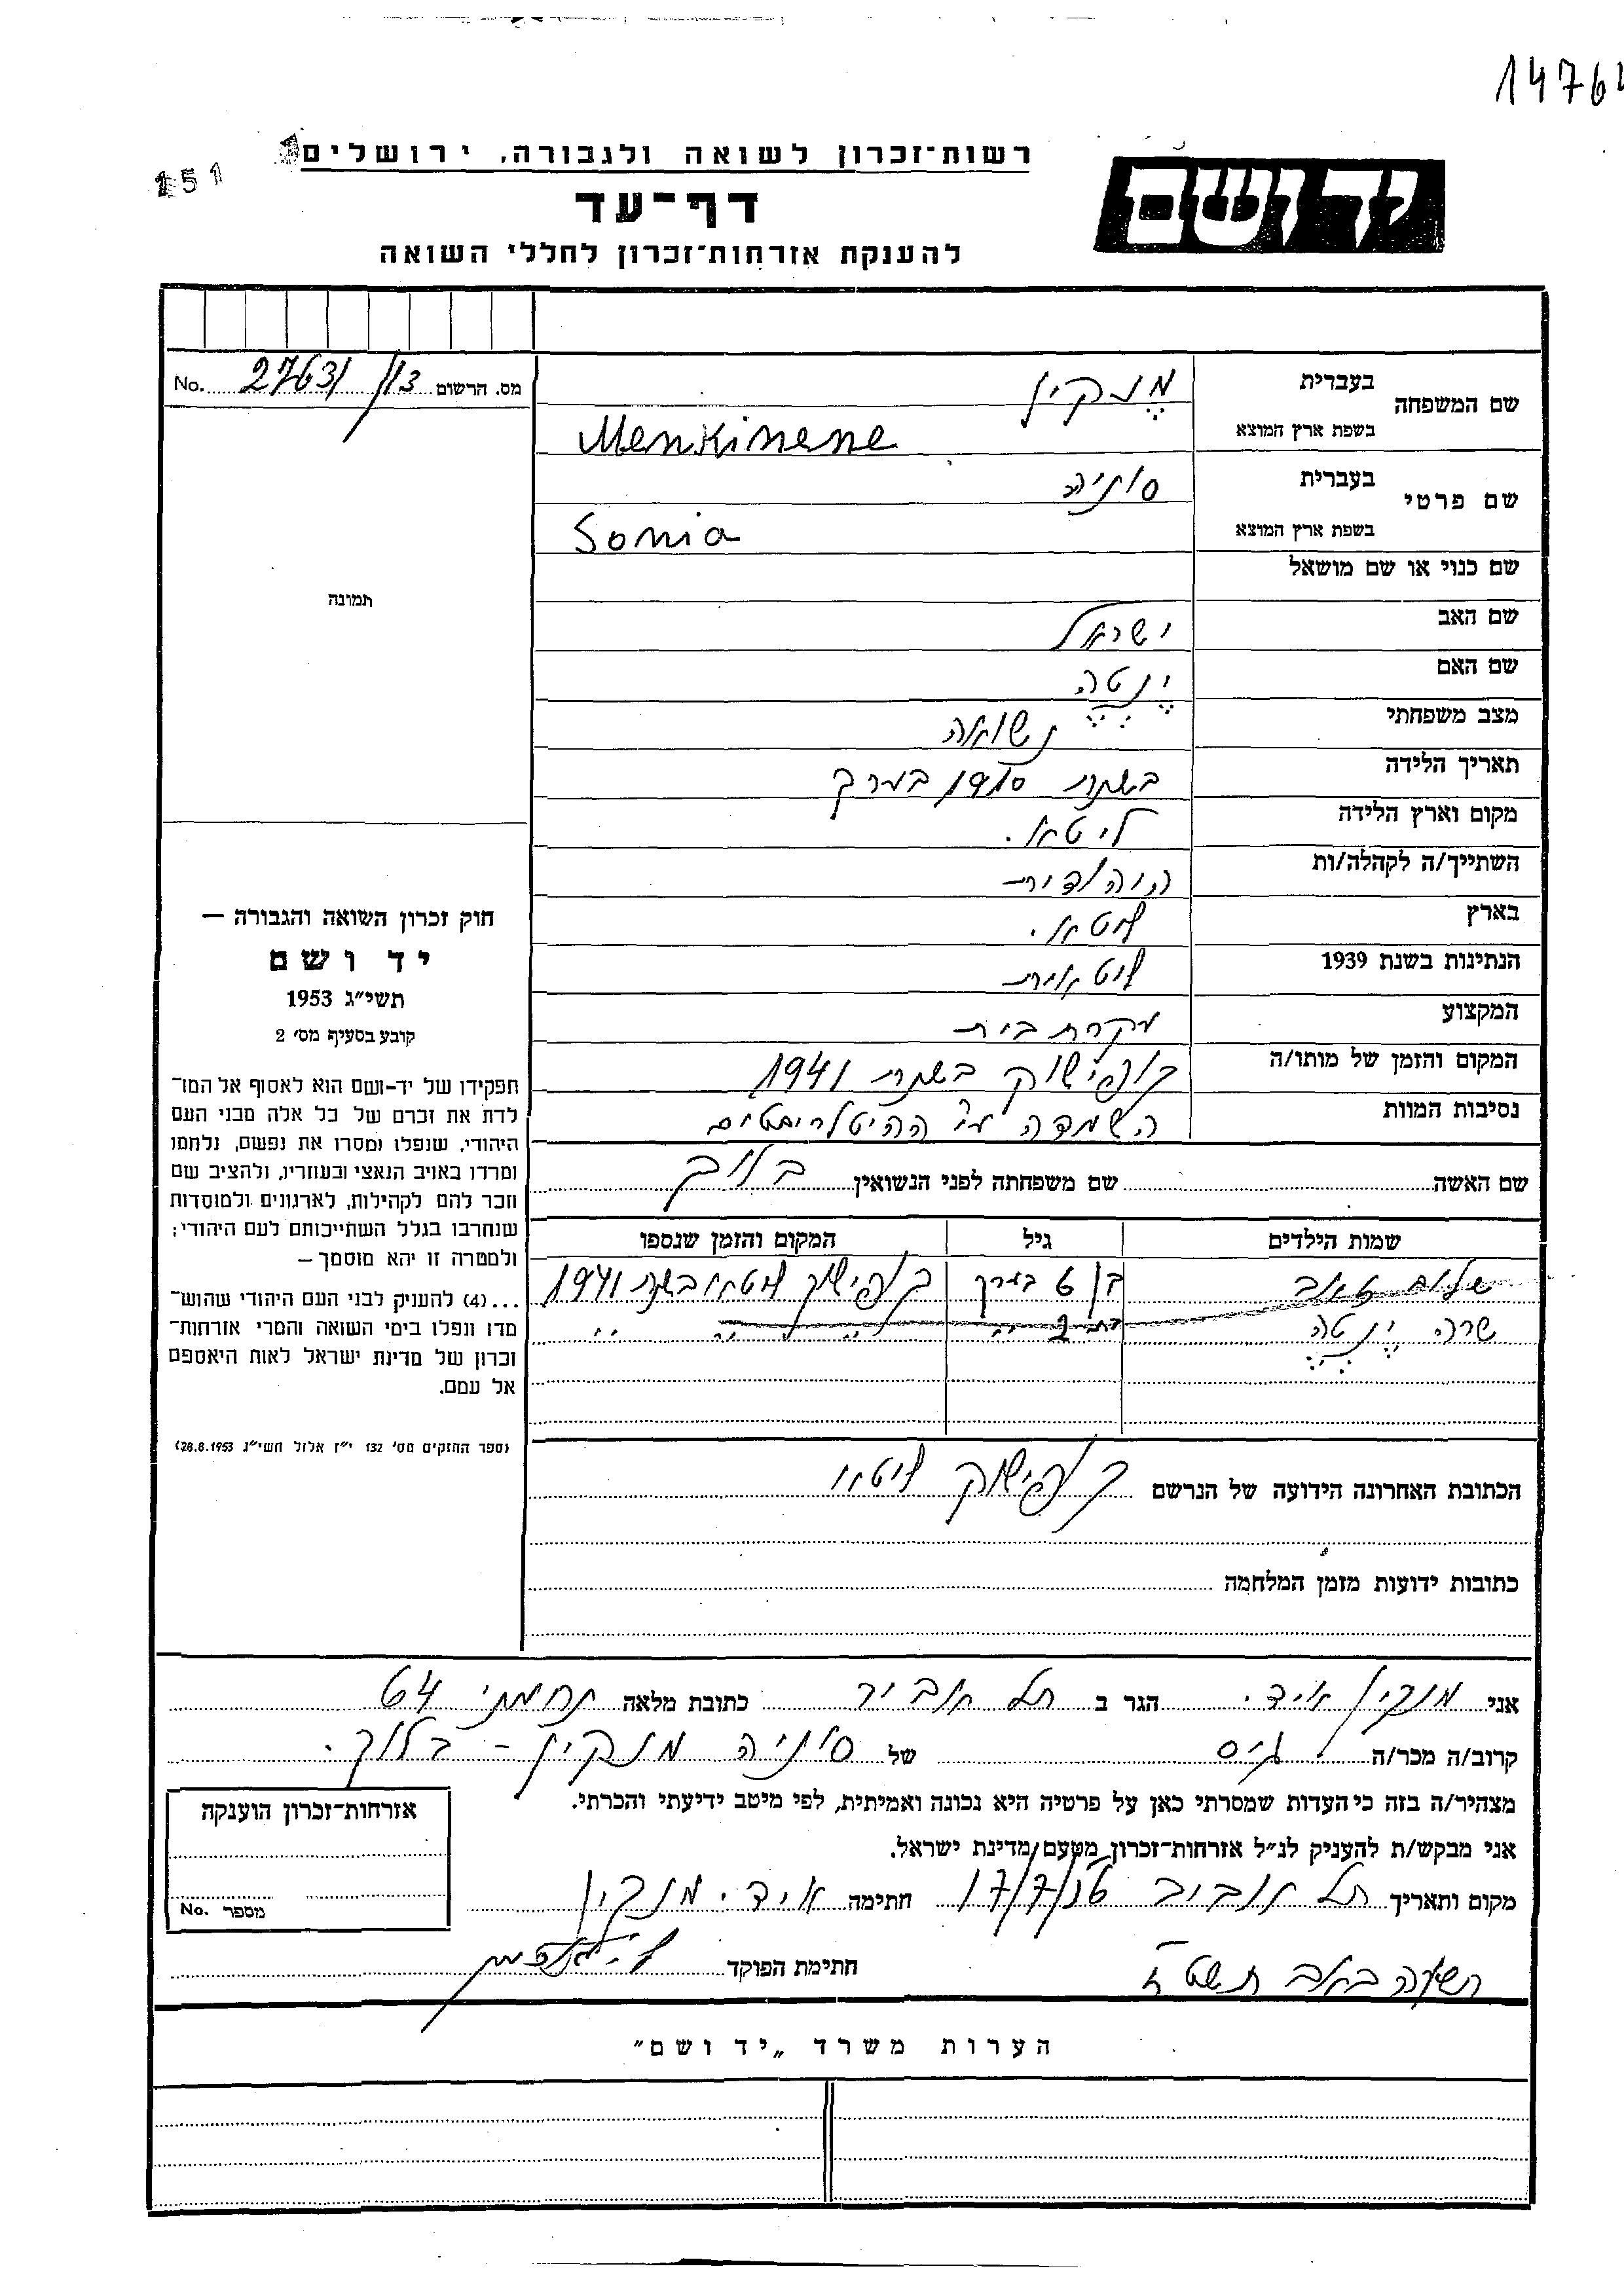 1476
רשות־זכרון לשואה ולגבורה, ירושלים
151
יד ושם
דף־עד
להענקת אזרחות־זכרון לחללי השואה
שם המשפחה בעברית מנקין
בשפת ארץ המוצא Menkinene
No. 2763/113 מס. הרשום
שם פרטי בעברית סוניה
בשפת ארץ המוצא Sonia
שם כנוי או שם מושאל
תמונה
שם האב ישראל
שם האם ינטה
מצב משפחתי נשואה
תאריך הלידה בשנת 1910 בערך
מקום וארץ הלידה ליטא.
השתייך/ה לקהלה/ות היהודית
בארץ ליטא.
הנתינות בשנת 1939 ליטאית
המקצוע עקרת בית
המקום והזמן של מותו/ה בשנת 1941
נסיבות המוות השמדה ע״י ההיטלריסטים
חוק זכרון השואה והגבורה —
יד ושם
תשי״ג 1953
קובע בסעיף מס׳ 2
תפקידו של יד-ושם הוא לאסוף אל המו־
לדת את זכרם של כל אלה מבני העם
היהודי, שנפלו ומסרו את נפשם, נלחמו
ומרדו באויב הנאצי ובעוזריו, ולהציב שם
וזכר להם לקהילות, לארגונים ולמוסדות
שנחרבו בגלל השתייכותם לעם היהודי;
ולמטרה זו יהא מוסמך –
...(4) להעניק לבני העם היהודי שהוש־
מדו ונפלו בימי השואה והמרי אזרחות־
זכרון של מדינת ישראל לאות היאספם
אל עמם.
(ספר החוקים מס׳ 132 י״ז אלול תשי״ג 28.8.1953)
שם האשה שם משפחתה לפני הנשואין בלוך
שמות הילדים גיל המקום והזמן שנספו
שלום זאב בן 6 בערך ליטא בשנת 1941
שרה ינטה בת 2 ״ ״ ״ ״ ״
הכתובת האחרונה הידועה של הנרשם ליטא
כתובות ידועות מזמן המלחמה
אני מנקין איד. הגר ב תל אביב כתובת מלאה נחמני 64
קרוב/ה מכר/ה גיס של סוניה מנקין - בלוך.
מצהיר/ה בזה כי העדות שמסרתי כאן על פרטיה היא נכונה ואמיתית, לפי מיטב ידיעתי והכרתי.
אני מבקש/ת להעניק לנ״ל אזרחות־זכרון מטעם מדינת ישראל.
מקום ותאריך תל אביב 17/7/56 חתימה איד. מנקין
תשעה באב
חתימת הפוקד
אזרחות־זכרון הוענקה
No. מספר
הערות משרד „יד ושם״